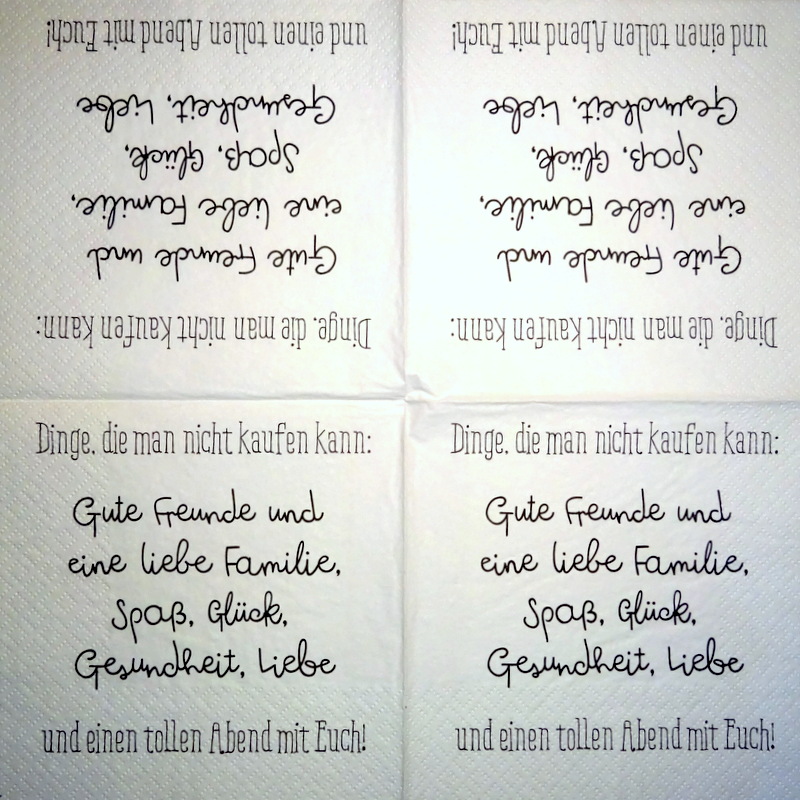 und einen tollen Abend mit Euch!
Gesundheit, Liebe
Spaß, Glück,
eine liebe Familie,
Gute Freunde und
Dinge, die man nicht kaufen kann:
und einen tollen Abend mit Euch!
Gesundheit, Liebe
Spaß, Glück,
eine liebe Familie,
Gute Freunde und
Dinge, die man nicht kaufen kann:
Dinge, die man nicht kaufen kann:
Gute Freunde und
eine liebe Familie,
Spaß, Glück,
Gesundheit, Liebe
und einen tollen Abend mit Euch!
Dinge, die man nicht kaufen kann:
Gute Freunde und
eine liebe Familie,
Spaß, Glück,
Gesundheit, Liebe
und einen tollen Abend mit Euch!